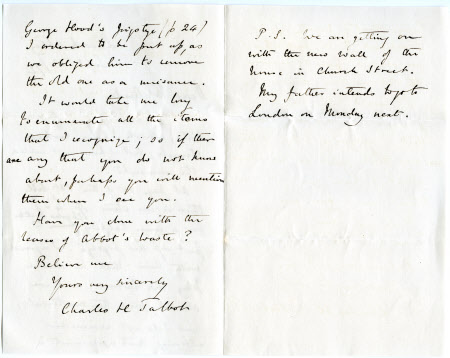 George Hood's Pigstye (p 24)
I ordered to be put up, as
we obliged him to remove
the old one as a nuisance.
It would take me long
to enumerate all the items
that I recognize; so if there
are any that you do not know
about, perhaps you will mention
them when I see you.
Have you done with the
leases of Abbot's Waste?
Believe me
Yours very sincerely
Charles H Talbot
P.S. We are getting on
with the new wall of the
house in Church Street.
My father intends to go to
London on Monday next.